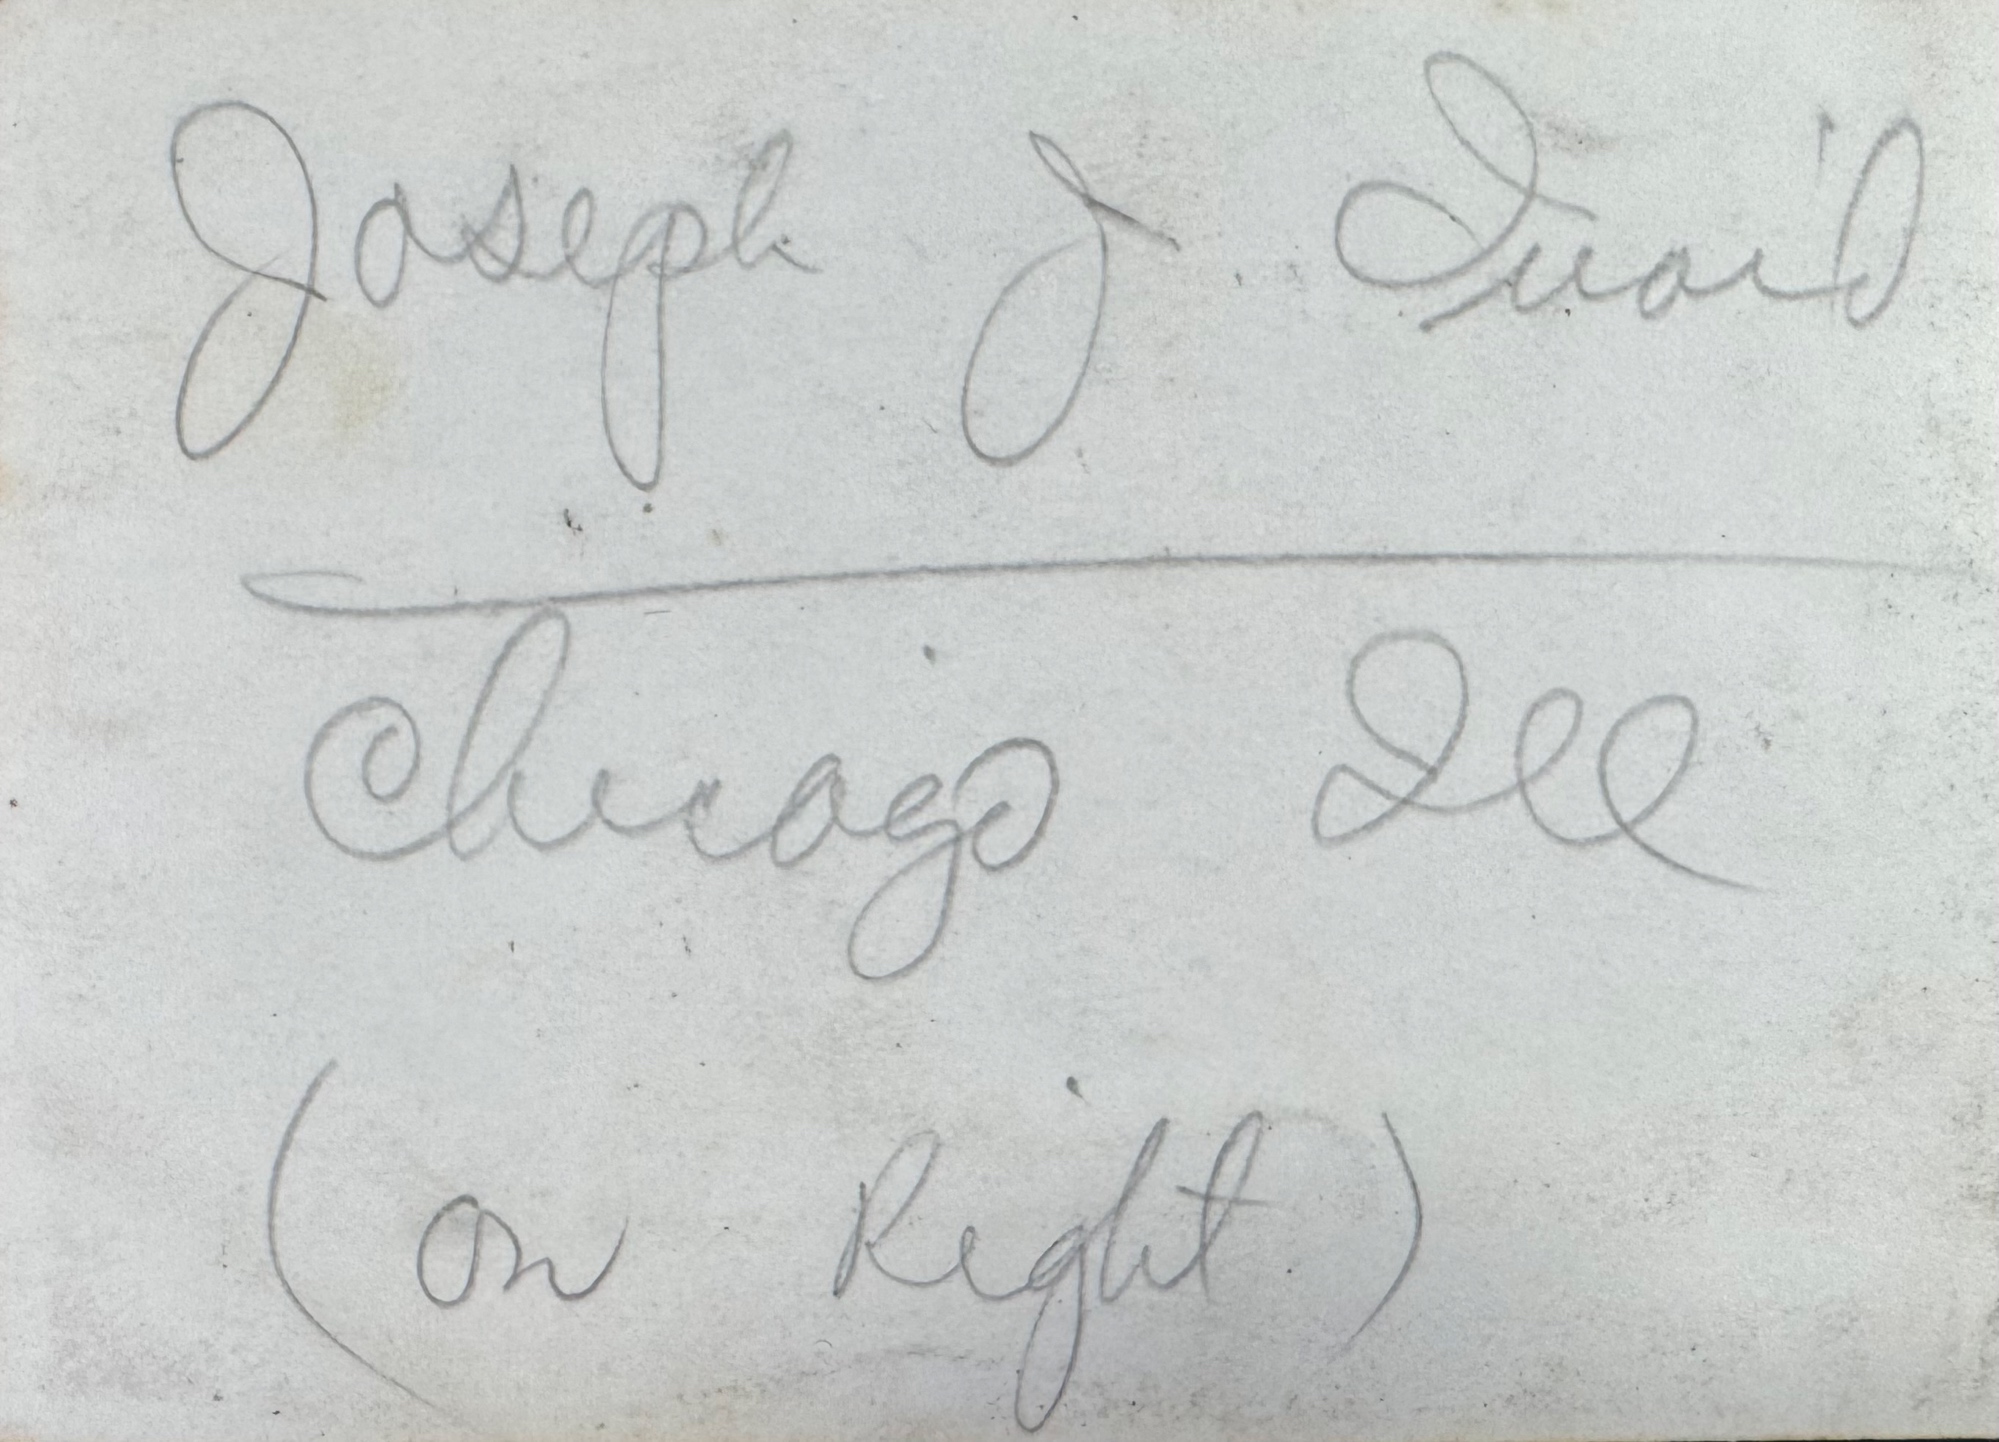 Joseph J.
Chicago Ill
(on Right)